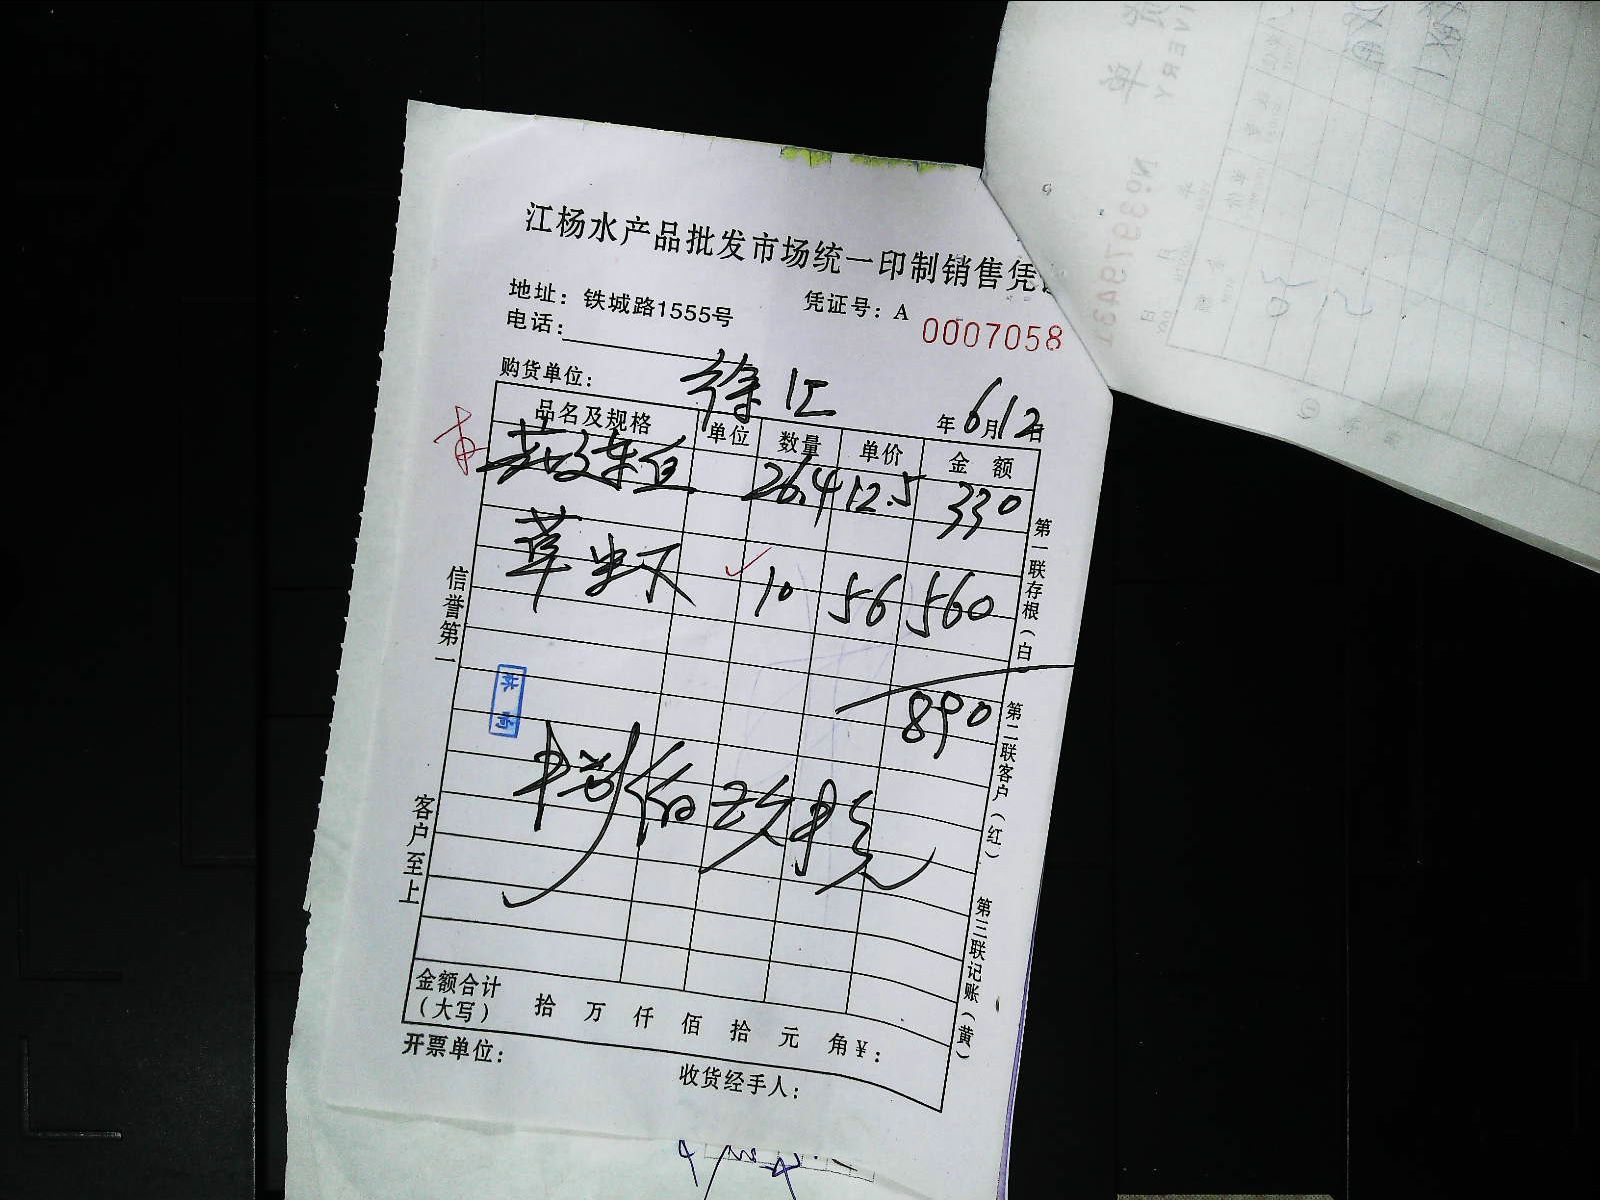 江杨水产品批发市场统一印制销售凭
地址：铁城路1555号
凭证号：A 0007058
电话：
购货单位： 徐汇 年 6月12日
品名及规格 单位 数量 单价 金额
26.4 12.5 330
草虾 10 56 560
890
捌佰玖拾元
金额合计（大写） 拾 万 仟 佰 拾 元 角 ￥：
开票单位：
收货经手人：
信誉第一
客户至上
第一联存根（白
第二联客户（红）
第三联记账（黄）